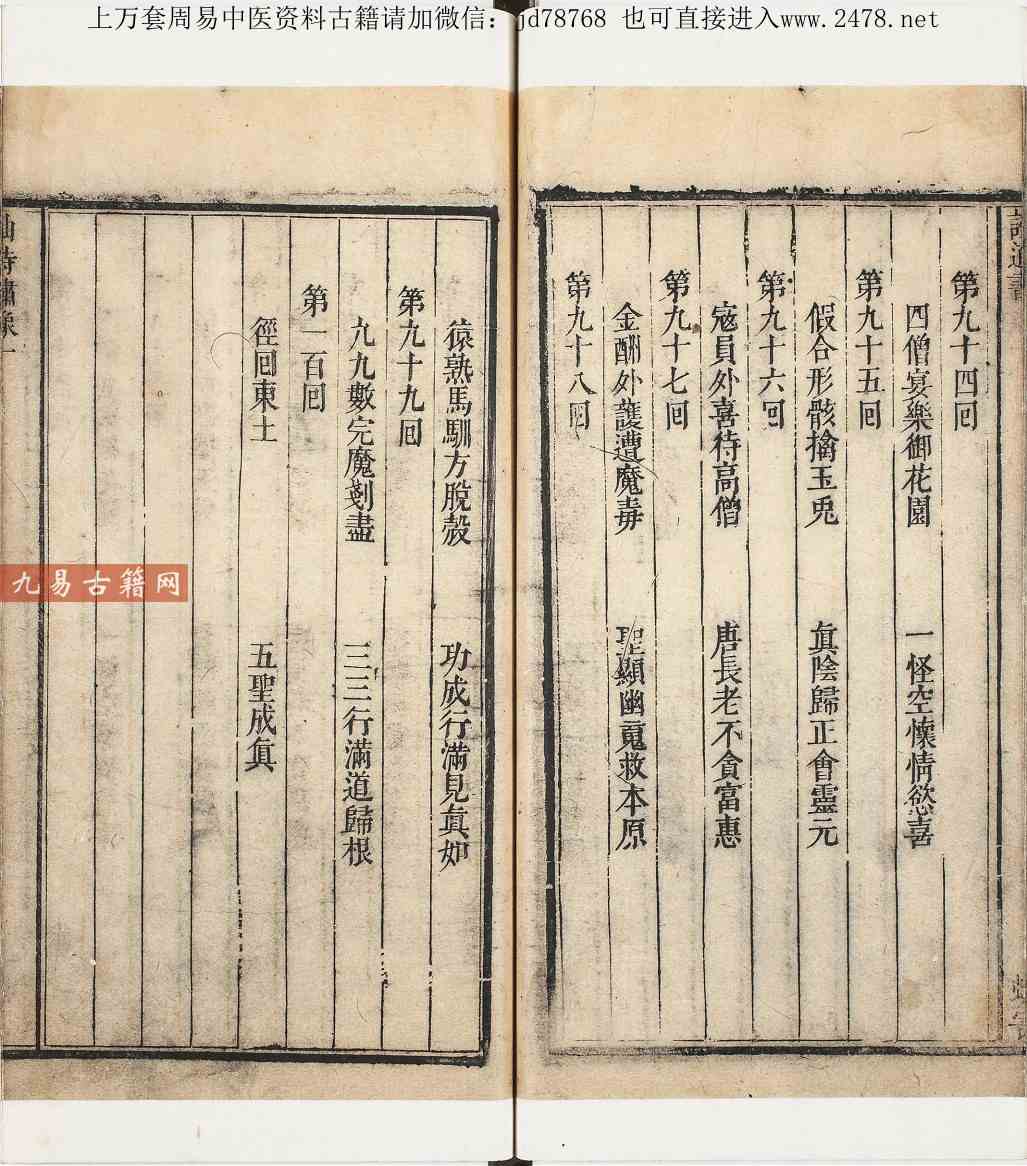 上万套周易中医资料古籍请加微信：jd78768 也可直接进入www.2478.net
第九十四回
四僧宴樂御花園 一怪空懷情慾喜
第九十五回
假合形骸擒玉兎 眞陰歸正會靈元
第九十六回
宼員外喜待高僧 唐長老不貪富惠
第九十七回
金酬外護遭魔毒 聖顯幽䰟救本原
第九十八回
猿熟馬馴方脫殻 功成行滿見眞如
第九十九回
九九數完魔剗盡 三三行滿道歸根
第一百回
徑回東土 五聖成眞
九易古籍网